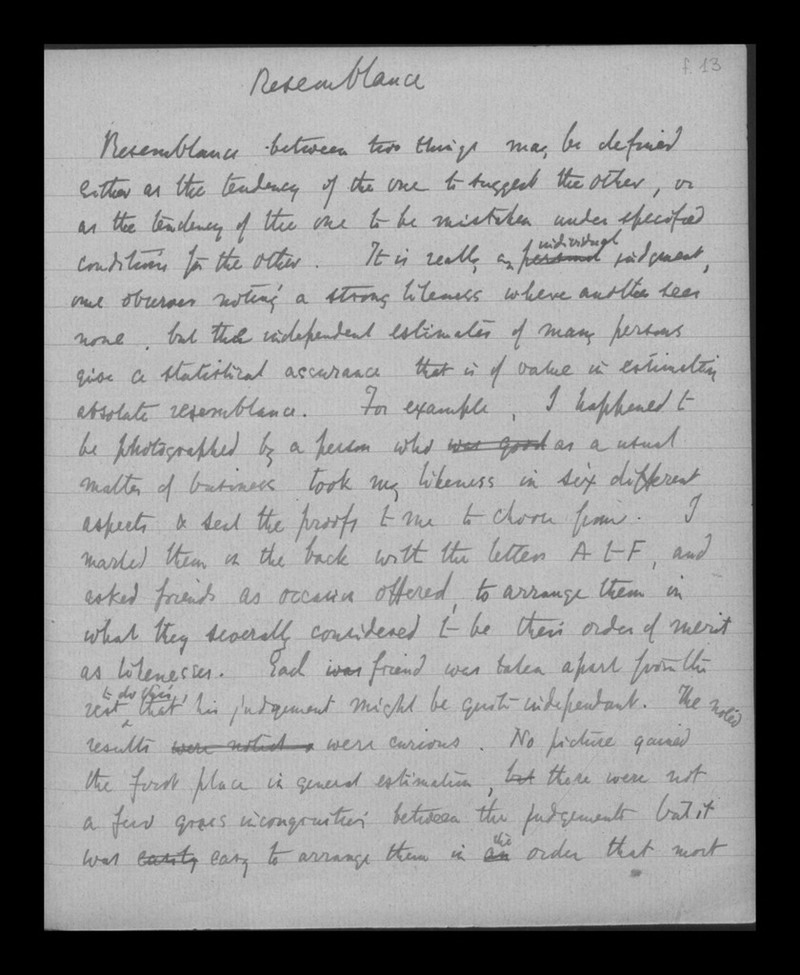 f. 13
Resemblance
Resemblance between two things may be defined
either as the tendency of the one to suggest the other, or
as the tendency of the one to be mistaken under specified
conditions for the other. It is really an personal individual judgement,
one observer noting a strong likeness where another sees
none, but the independent estimates of many persons
give a statistical assurance that is of value in estimating
absolute resemblance. For example, I happened to
be photographed by a person who was good as a usual
matter of business took my likeness in six different
aspects & sent the proofs to me to choose from. I
marked them on the back with the letters A to F, and
asked friends as occasion offered, to arrange them in
what they severally considered to be their order of merit
as likenesses. Each was friend was taken apart from the
rest to do this, that his judgement might be quite independent. The noted
results were noted were curious. No picture gained
the first place in general estimation, but there were not
a few gross incongruities between the judgements but it
was easily easy to arrange them in an the order that most